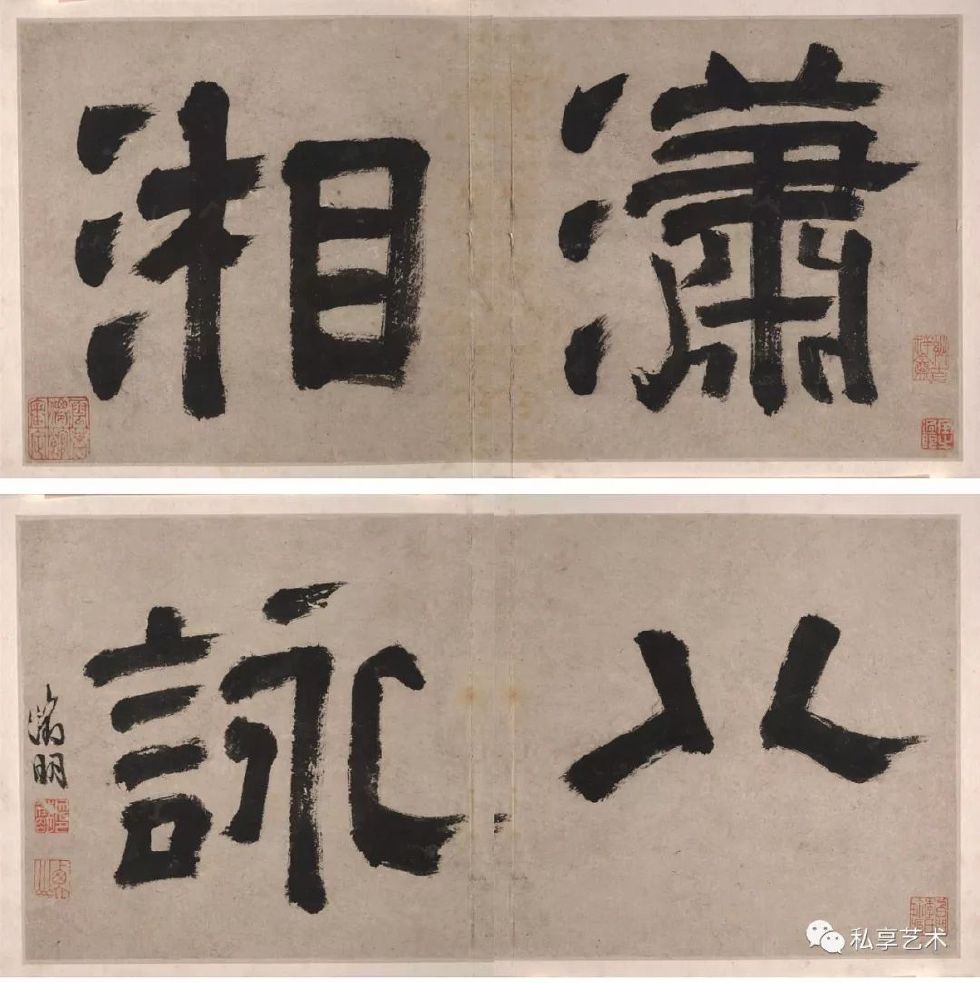 瀟湘
八詠
徵明
私享艺术